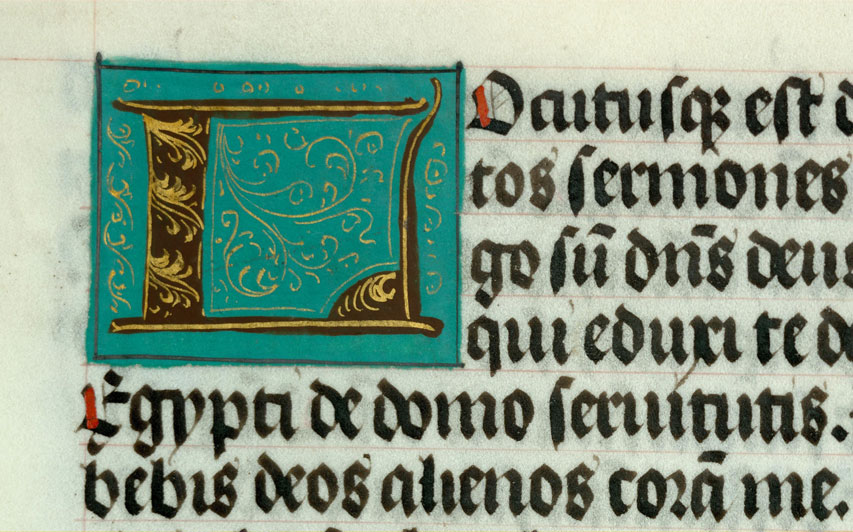 LOcutusqꝫ est
tos sermones
go sū dn̄s deus
qui eduxi te de
Egypti de domo seruitutis.
bebis deos alienos corā me.